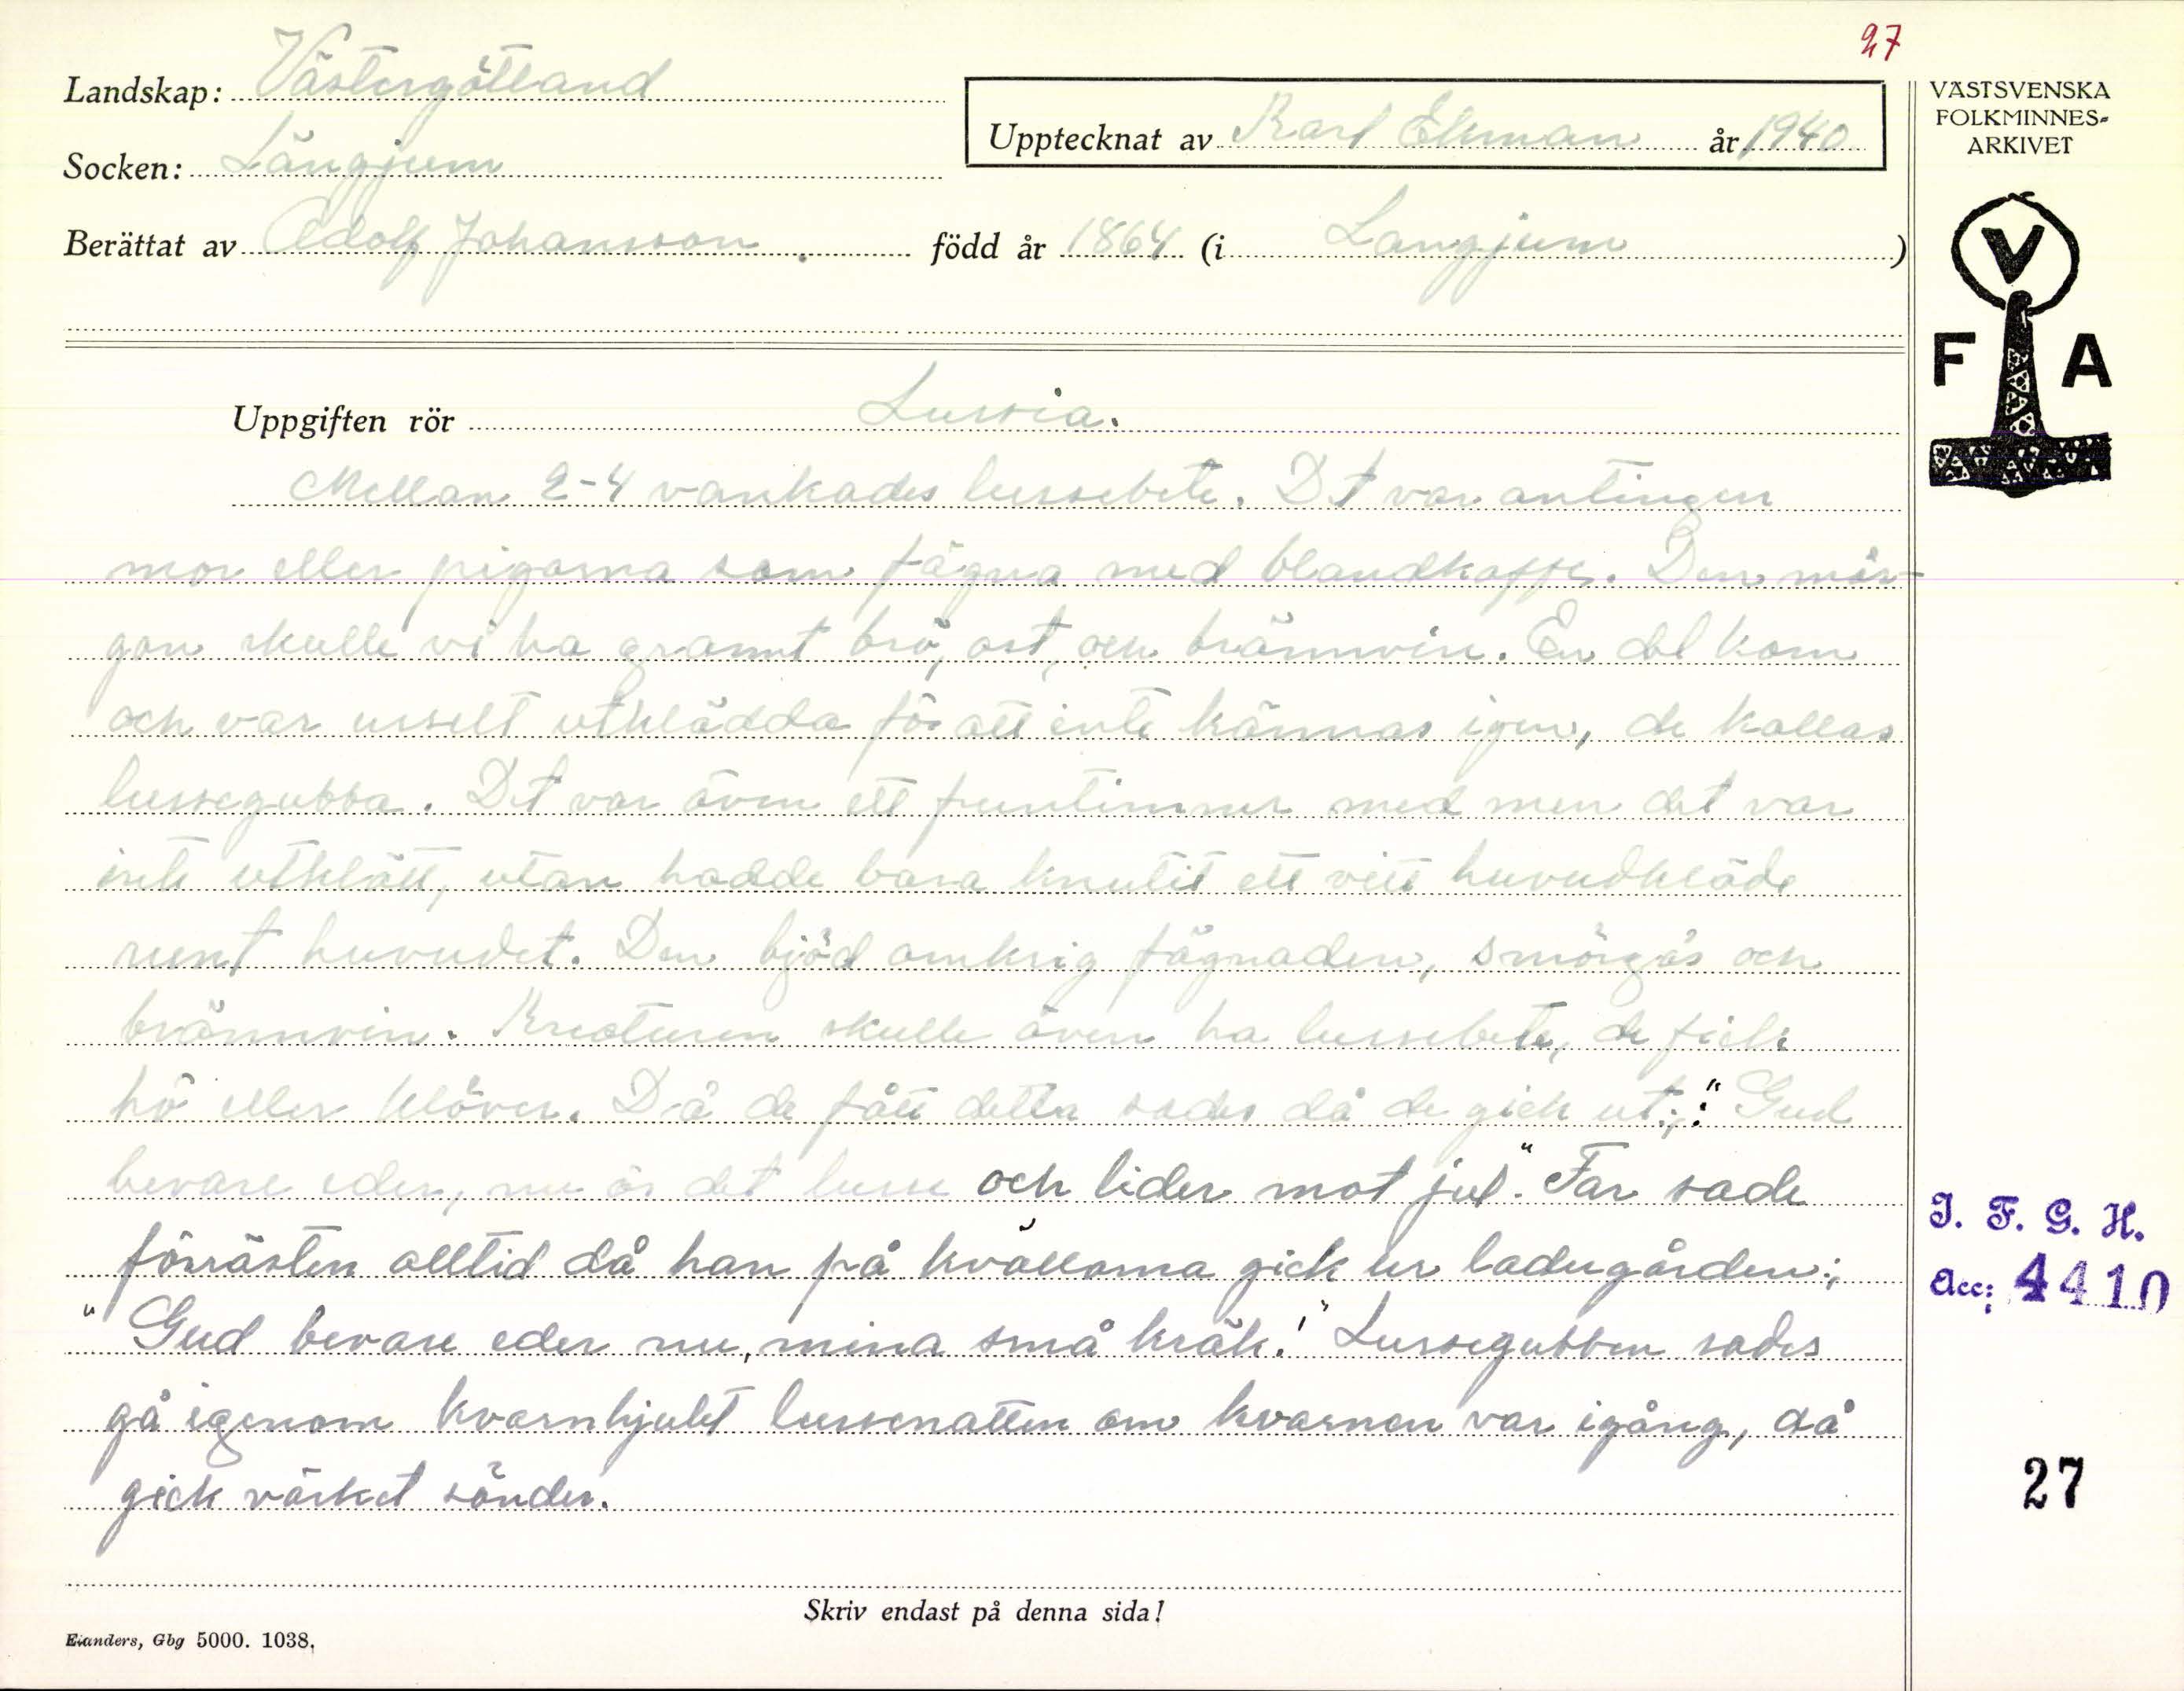 27
Landskap: Västergötland
Upptecknat av Karl Ekman år 1940
Socken: Långjum
Berättat av Adolf Johansson. född år 1864 (i Langjum)
VÄSTSVENSKA
FOLKMINNES-
ARKIVET
V
F A
Uppgiften rör Lussia.
Mellan 2-4 vankades lussebete. Det var antingen
mor eller pigorna som fägna med blandkaffe. Den mår-
gon skulle vi ha grannt brö, ost, och brännvin. En del kom
och var usselt utklädda för att inte kännas igen, de kallas
lussegubba. Det var även ett fruntimmer med men det var
inte utklätt, utan hadde bara knutit ett vitt huvudkläde
runt huvudet. Den bjöd omkrig fägnaden, smörgås och
brännvin. Kreaturen skulle även ha lussebete, de fick
hö eller klöver. Då de fått detta sades då de gick ut;: "Gud
bevare eder, nu är det lusse och lider mot jul". Far sade
förrästen alltid då han på kvällarna gick ur ladugården:;
"Gud bevare eder nu, mina små kräk!" Lussegubben sades
gå igenom kvarnhjulet lussenatten om kvarnen var igång, då
gick värket sönder.
I. F. G. H.
Acc: 4410
27
Skriv endast på denna sida!
Eianders, Gbg 5000. 1038.